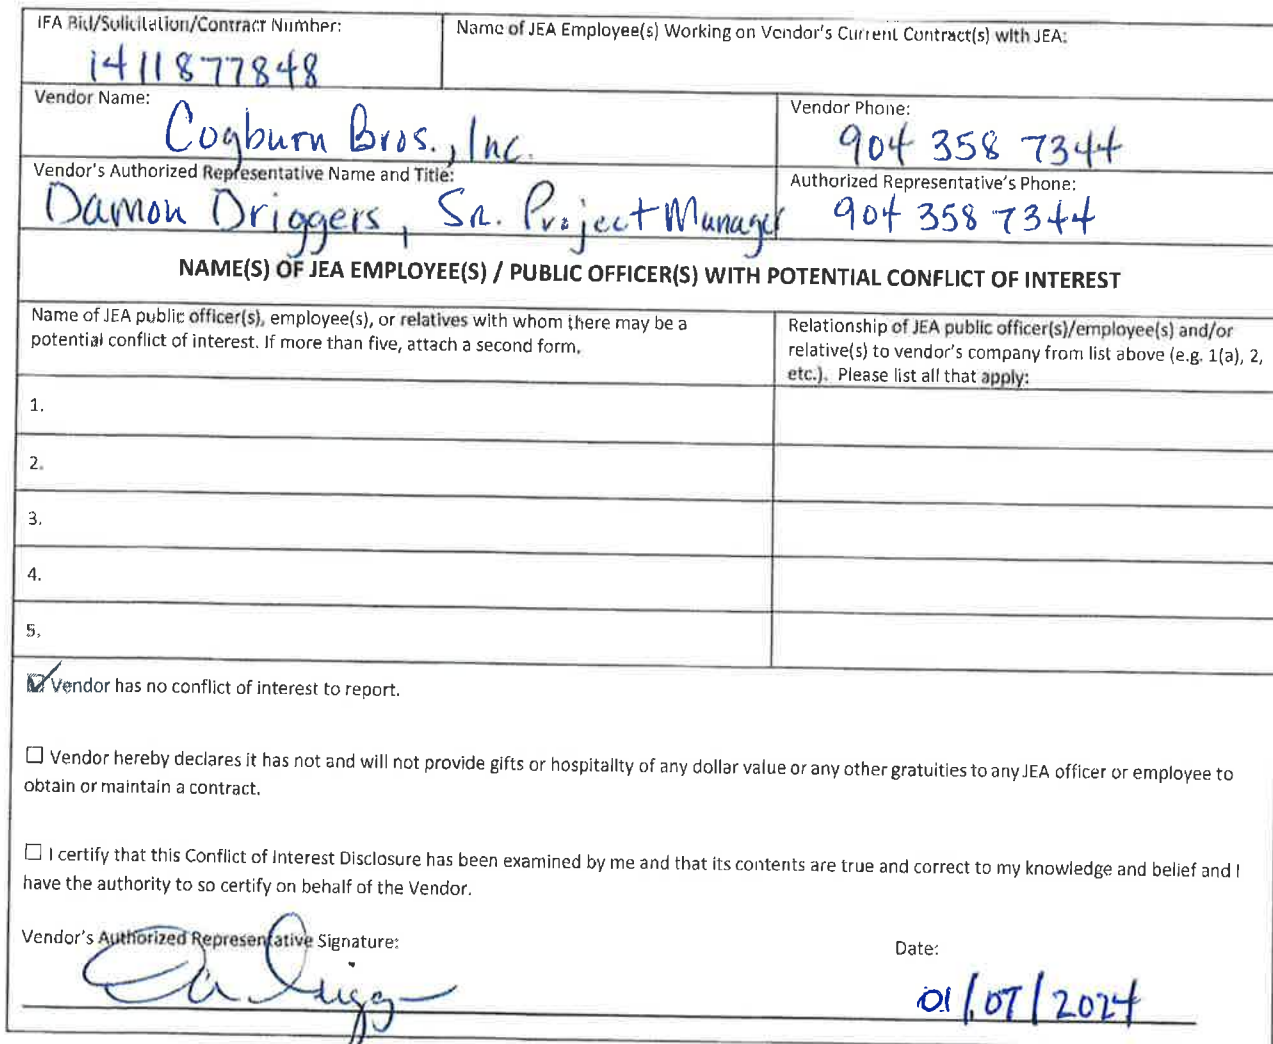 IFA Bid/Solicitation/Contract Number:
1411877848
Name of JEA Employee(s) Working on Vendor's Current Contract(s) with JEA:
Vendor Name:
Cogburn Bros., Inc.
Vendor Phone:
904 358 7344
Vendor's Authorized Representative Name and Title:
Damon Driggers, Sr. Project Manager
Authorized Representative's Phone:
904 358 7344
NAME(S) OF JEA EMPLOYEE(S) / PUBLIC OFFICER(S) WITH POTENTIAL CONFLICT OF INTEREST
Name of JEA public officer(s), employee(s), or relatives with whom there may be a
potential conflict of interest. If more than five, attach a second form.
Relationship of JEA public officer(s)/employee(s) and/or
relative(s) to vendor's company from list above (e.g. 1(a), 2,
etc.). Please list all that apply:
1.
2.
3.
4.
5.
☑ Vendor has no conflict of interest to report.
☐ Vendor hereby declares it has not and will not provide gifts or hospitality of any dollar value or any other gratuities to any JEA officer or employee to
obtain or maintain a contract.
☐ I certify that this Conflict of Interest Disclosure has been examined by me and that its contents are true and correct to my knowledge and belief and I
have the authority to so certify on behalf of the Vendor.
Vendor's Authorized Representative Signature:
Date:
01/07/2024